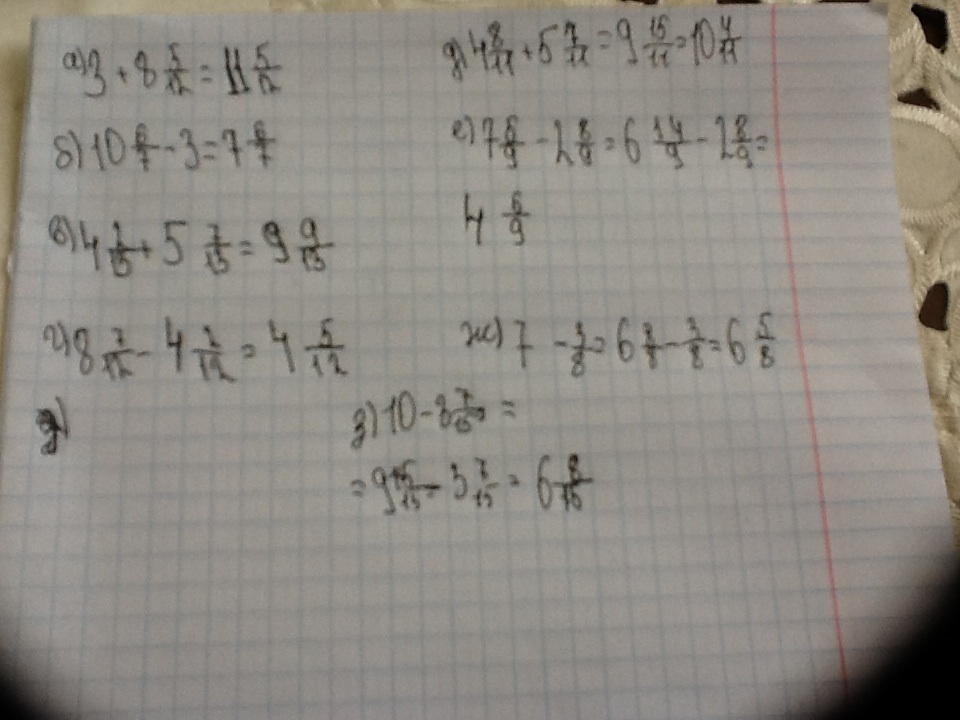 а) 3 + 8 5/12 = 11 5/12
б) 10 6/7 - 3 = 7 6/7
в) 4 2/15 + 5 7/15 = 9 9/15
г) 8 7/12 - 4 2/12 = 4 5/12
д)
д) 4 8/11 + 5 7/11 = 9 15/11 = 10 4/11
е) 7 5/9 - 2 8/9 = 6 14/9 - 2 8/9 =
4 6/9
ж) 7 - 3/8 = 6 8/8 - 3/8 = 6 5/8
з) 10 - 3 7/15 =
= 9 15/15 - 3 7/15 = 6 8/15